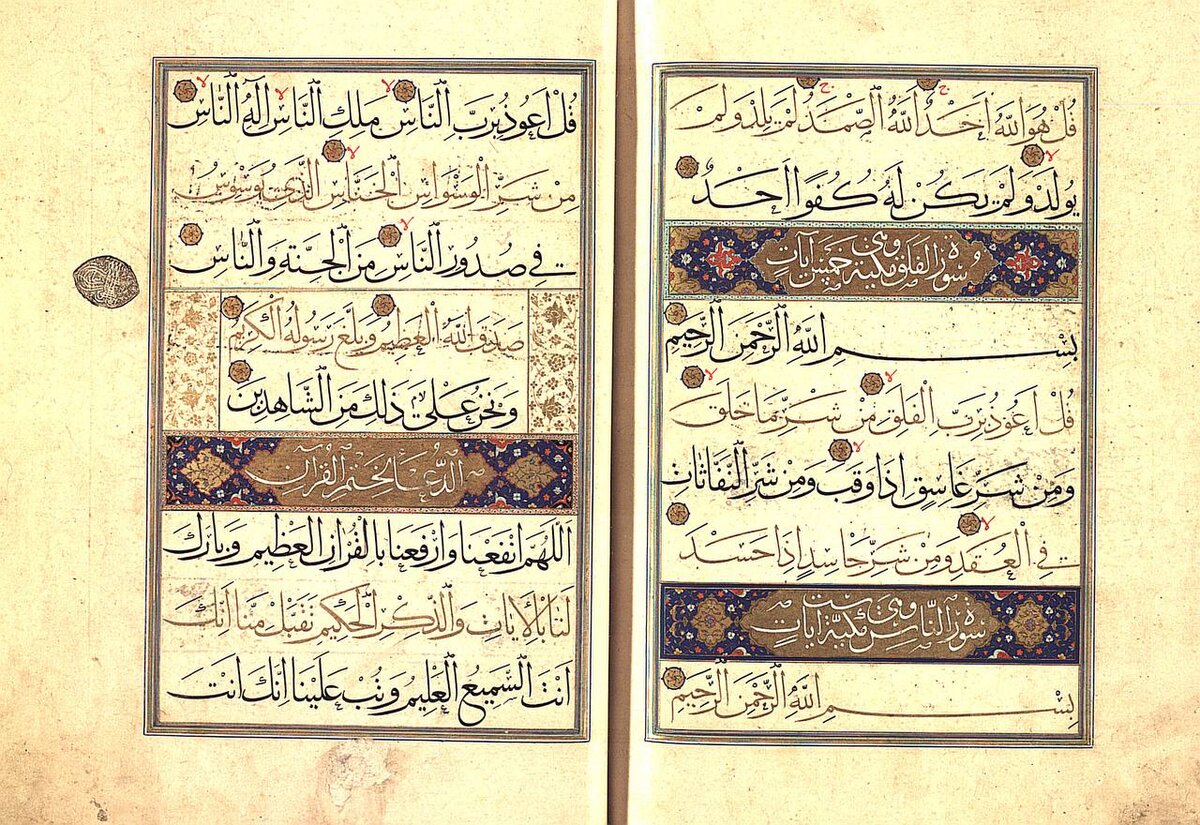 قُلْ هُوَ اللّٰهُ اَحَدٌ اَللّٰهُ الصَّمَدُ لَمْ يَلِدْ وَلَمْ
يُولَدْ وَلَمْ يَكُنْ لَهُ كُفُوًا اَحَدٌ
سورة الفلق مكية وهى خمس آيات
بِسْمِ اللّٰهِ الرَّحْمٰنِ الرَّحِيمِ
قُلْ اَعُوذُ بِرَبِّ الْفَلَقِ مِنْ شَرِّ مَا خَلَقَ
وَمِنْ شَرِّ غَاسِقٍ اِذَا وَقَبَ وَمِنْ شَرِّ النَّفَّاثَاتِ
فِي الْعُقَدِ وَمِنْ شَرِّ حَاسِدٍ اِذَا حَسَدَ
سورة الناس مكية وهى ست آيات
بِسْمِ اللّٰهِ الرَّحْمٰنِ الرَّحِيمِ
قُلْ اَعُوذُ بِرَبِّ النَّاسِ مَلِكِ النَّاسِ اِلٰهِ النَّاسِ
مِنْ شَرِّ الْوَسْوَاسِ الْخَنَّاسِ الَّذِي يُوَسْوِسُ
فِي صُدُورِ النَّاسِ مِنَ الْجِنَّةِ وَالنَّاسِ
صَدَقَ اللّٰهُ الْعَظِيمُ وَبَلَّغَ رَسُولُهُ الْكَرِيمُ
وَنَحْنُ عَلٰى ذٰلِكَ مِنَ الشَّاهِدِينَ
الدعاء لختم القرآن
اَللّٰهُمَّ انْفَعْنَا وَارْفَعْنَا بِالْقُرْاٰنِ الْعَظِيمِ وَبَارِكْ
لَنَا بِالْاٰيَاتِ وَالذِّكْرِ الْحَكِيمِ تَقَبَّلْ مِنَّا اِنَّكَ
اَنْتَ السَّمِيعُ الْعَلِيمُ وَتُبْ عَلَيْنَا اِنَّكَ اَنْتَ